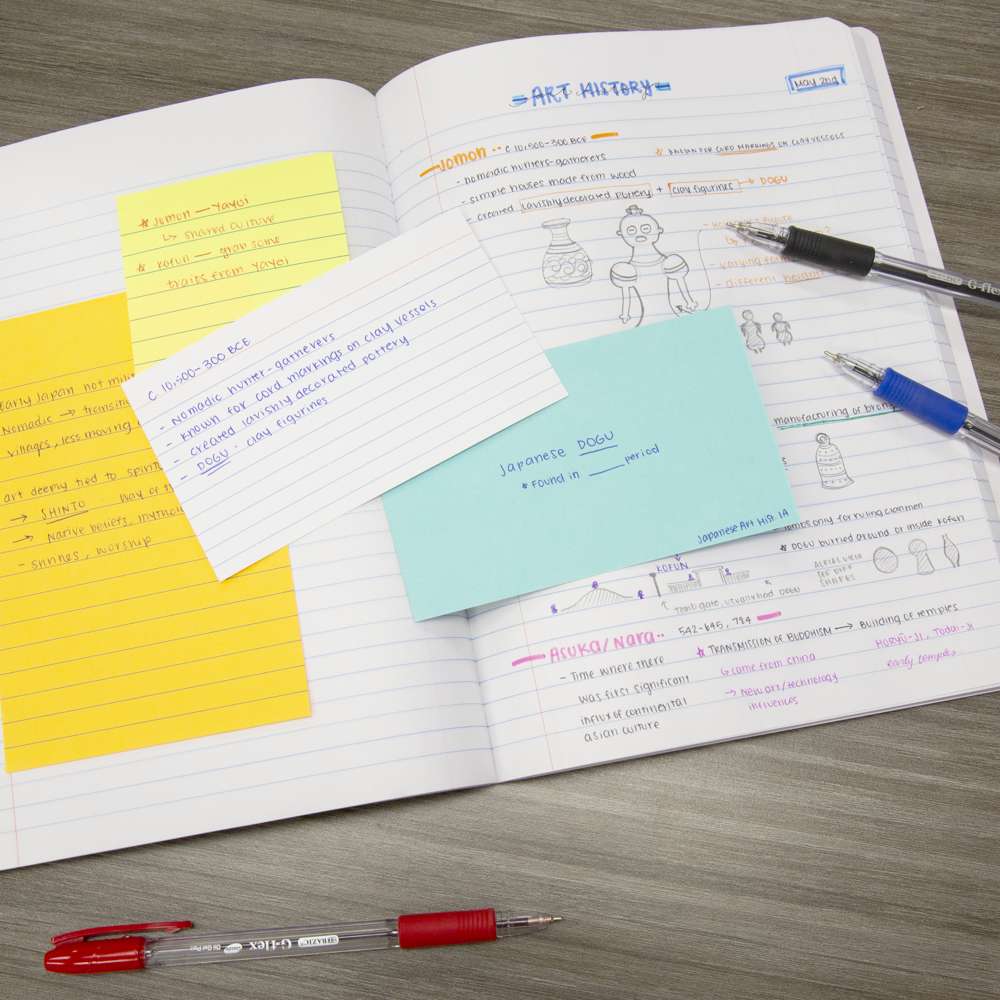 * Jomon — Yayoi
↳ shared culture
* Kofun — grab some
traits from Yayoi
Early Japan not
Nomadic →
villages, less moving
art deeply tied to
→ SHINTO
→ Native beliefs,
- shrines, worship
C 10,500-300 BCE
- Nomadic hunter-gatherers
- Known for cord markings on clay vessels
- created lavishly decorated pottery
- DOGU - clay figurines
Japanese DOGU
* Found in ____ period
Japanese Art Hist. 1A
ART HISTORY
May 2nd
Jomon ·· C 10,500-300 BCE
- nomadic hunters-gatherers
- simple houses made from wood
- created lavishly decorated pottery + clay figurines → DOGU
* KNOWN FOR CORD MARKINGS ON CLAY VESSELS
- different
manufacturing of
only for ruling clanmen
* DOGU buried around or inside Kofun
AERIAL VIEW
THE DIFF
SHAPES
KOFUN
↑ Tomb gate, usually had DOGU
Asuka/Nara·· 542-645, 784
- Time where there
was first significant
influx of continental
asian culture
* TRANSMISSION OF BUDDHISM → Building of temples
↳ came from china
→ New art/technology
influences
HORYŪ-JI, Todai-Ji
early temples
G-flex
BAZIC G-flex Oil Gel Pen